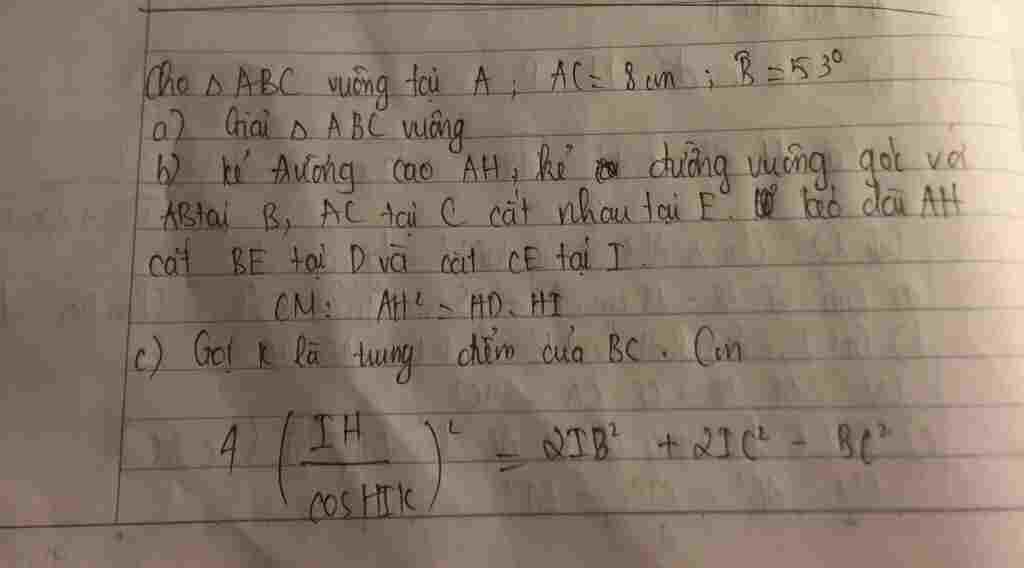 Cho △ ABC vuông tại A ; AC = 8 cm ; B = 53°
a) Giải △ ABC vuông
b) kẻ đường cao AH, kẻ đường vuông góc với
AB tại B, AC tại C cắt nhau tại E. kéo dài AH
cắt BE tại D và cắt CE tại I.
CM: AH² = HD. HI
c) Gọi K là trung điểm của BC. Cm
4 (IH / cos HIK)² = 2IB² + 2IC² - BC²